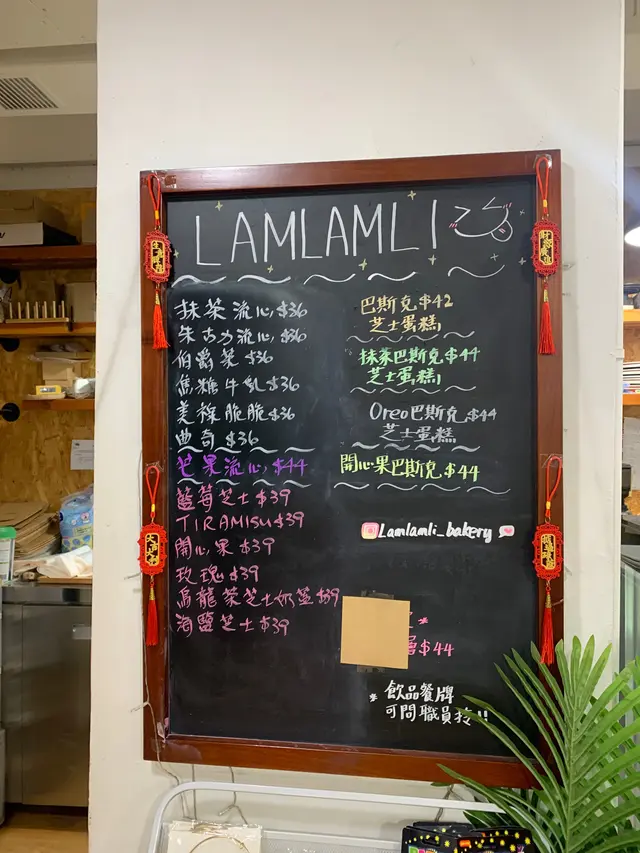 LAMLAMLI
抹茶流心 $36
朱古力流心 $36
伯爵茶 $36
焦糖牛乳 $36
美祿脆脆 $36
曲奇 $36
芒果流心 $44
藍莓芝士 $39
TIRAMISU $39
開心果 $39
玫瑰 $39
烏龍茶芝士奶蓋 $39
海鹽芝士 $39
巴斯克 $42
芝士蛋糕
抹茶巴斯克 $44
芝士蛋糕
Oreo巴斯克 $44
芝士蛋糕
開心果巴斯克 $44
Lamlamli_bakery
$44
* 飲品餐牌
可問職員拎!!